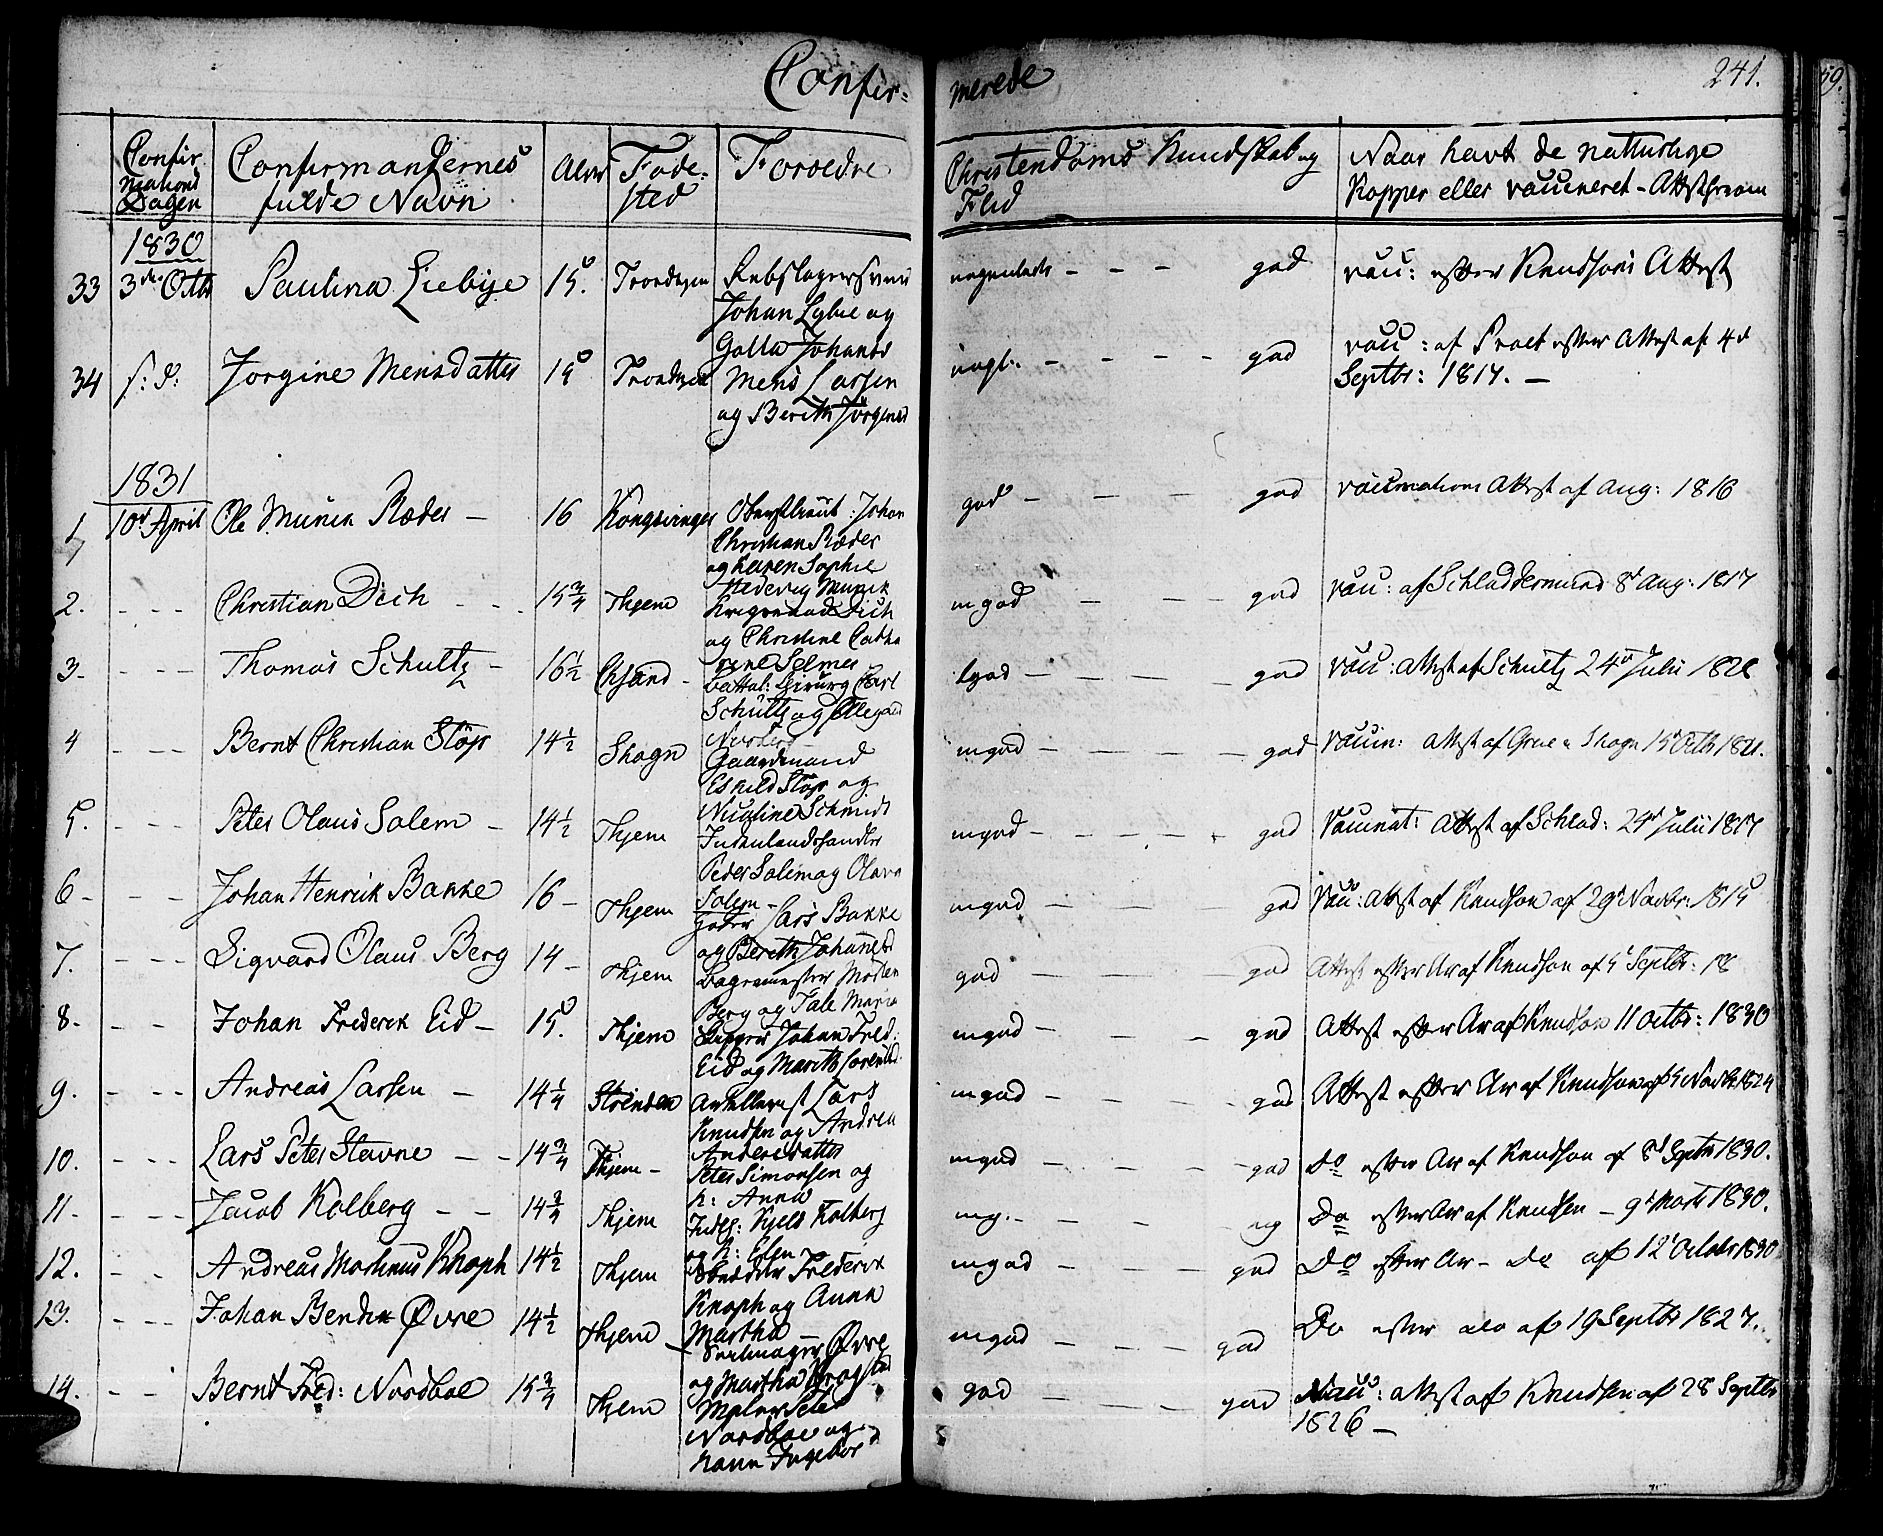 Confir-
merede
241.
59.
Confir
mations
Dagen
Confirmandernes
fulde Navn
Alder
Føde-
sted
Forældre
Christendoms Kundskab og
Flid
Naar havt de naturlige
Kopper eller vaccineret - Attest herom
1830
33 3die Octbr Paulina Liebye 15. Trondhjem
Johan Lybye og
god vacc: efter Knudsons Attest
34 s: d: Jørgine Mensdatter 15 Trondhjem
Mens Larsen
og Berith Jørgensd
god vacc: af Proet efter Attest af 4d
Septbr: 1817. -
1831
1 10d April Ole Munch Ræder - 16 Kongsvinger Oberstlieut: Johan
Christian Ræder
og Karen Sophie
Hedevig Munck
god - - - god Vaccinations Attest af Aug: 1816
2. - - - Christian Dich - - - 15 3/4 Thjem
og Christine Cathr
mgod - - god vacc: af Schladdermund 8d Aug: 1817
3. - - - Thomas Schultz - 16 1/2 Chsand -
Battal: Chirurg Carl
Schultz og
tgod - - - - god vacc: Attest af Schultz 24de Julii
4 - - - Bernt Christian Støp 14 1/2 Skogn
Gaardmand
Eskild Støp og
Nicoline Schmidt
mgod - - - - god Vaccin: Attest af
5. - - - Peter Olaus Solem - 14 1/2 Thjem
Indenlandshandler
Peder Solem og Olava
Solem -
mgod - - - - god Vaccinat: Attest af Schlad: 24de Julii 1817
6 - - - Johan Henrik Bakke 16 - Thjem
Lars Bakke
og Berith Johansd
mgod - - - god Vacc: Attest af Knudson af 29d Novbr: 1815
7. - - - Sigvard Olaus Berg 14 - Thjem
Bagermester Morten
Berg og Tale Maria
god - - - god Attest efter Ar af Knudson af 5d Septbr: 18
8. - - Johan Frederik Eid - 15. Thjem
Skipper Johan Fred:
Eid og Marith Lorentsd.
mgod - - - god Attest efter Ar af Knudson 11 Octbr: 1830
9. - - - Andreas Larsen - 14 1/4 Strinden
Artillerist Lars
Knudsen og Andrea
Andersdatter
mgod - - - - god Attest efter Ar af Knudson af 5 Novbr 1824
10. - - - Lars Peter Stavne - - 14 3/4 Thjem -
Peter Simonsen og
K: Anna
mgod - - - god Do efter Ar af Knudson af 8d Septbr 1830.
11. - - - Jacob Kolberg - - 14 3/4 Thjem
Kield Kolberg
og K: Elen
mg. - - - - mg Do efter Ar af Knudsen - 9d Marts 1830.
12. - - Andreas Martinus Knoph 14 1/2 Thjem
Frederik
Knoph og Anna
Martha -
mgod - - - - god Do efter Ar - Do af 12d Octobr 1830
13. - - - Johan Bendik Øvre 14 1/2 Thjem -
Øvre
og Martha
mgod - - - god Do efter do af 19 Septbr 1827.
14. - - Bernt Fred: Nordboe 15 3/4 Thjem
Peter
Nordboe og
Ingebor
god - - - god Vacc: Attest af Knudsen af 28 Septbr
1826 -